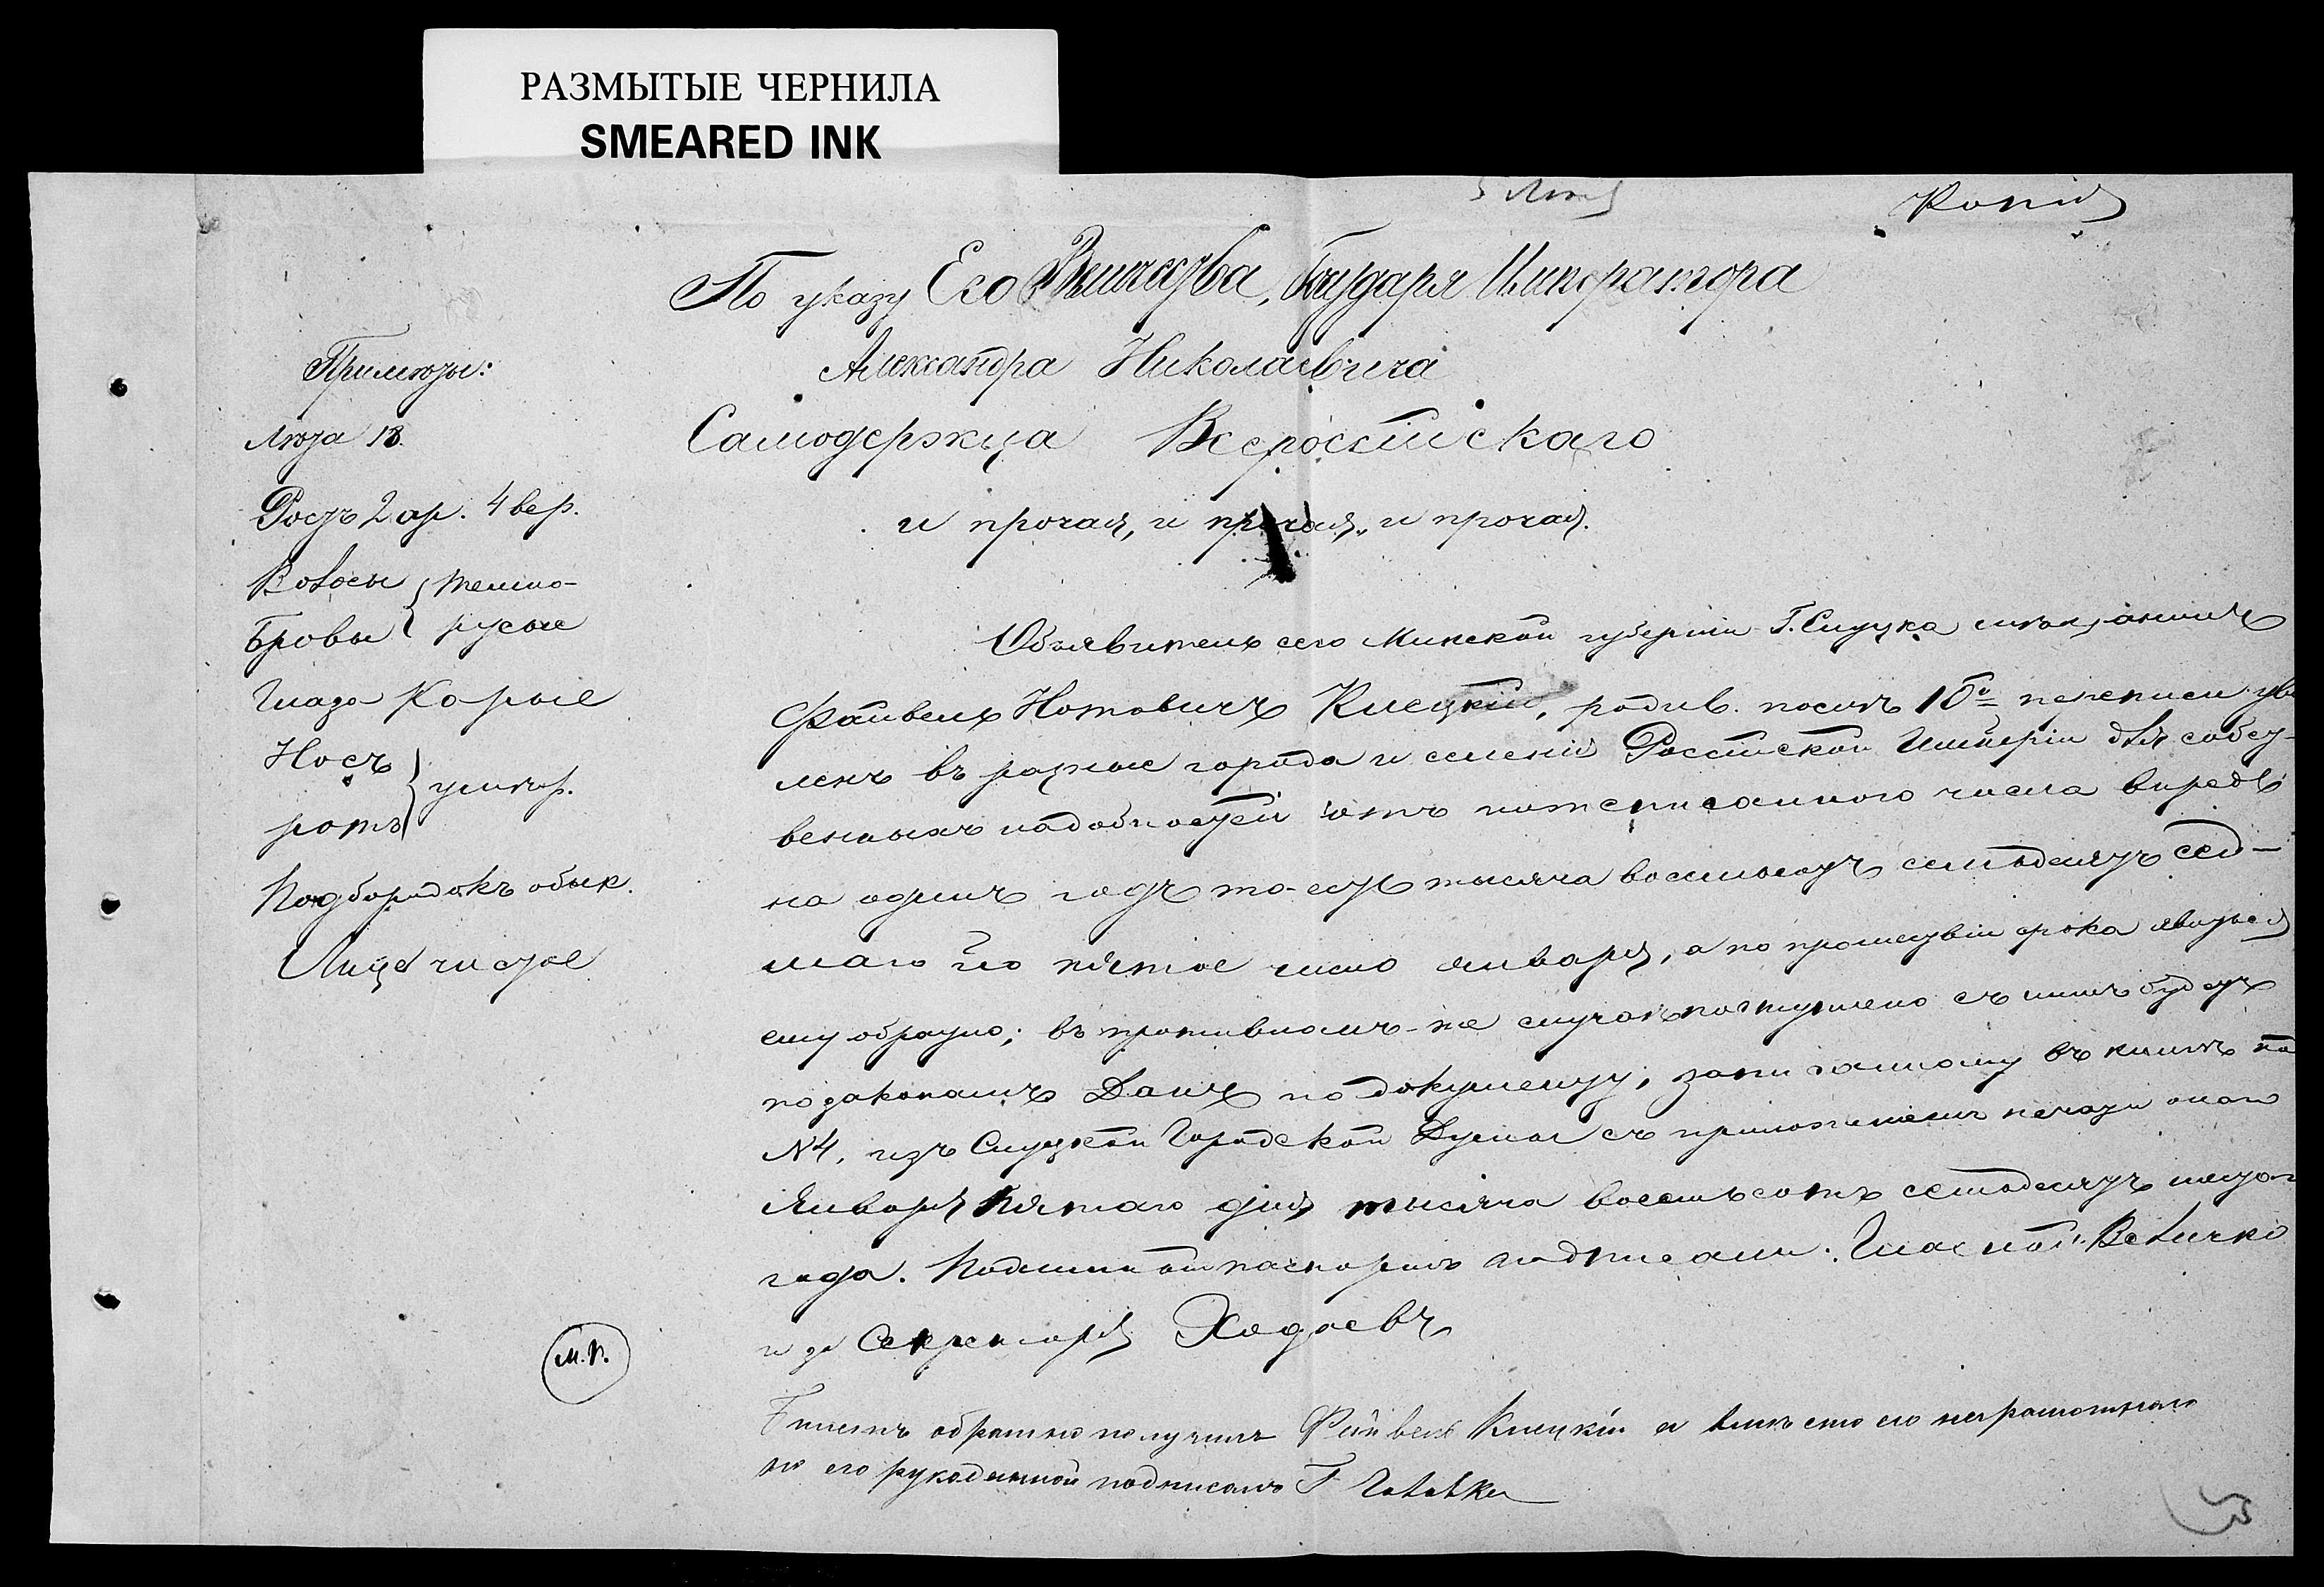 РАЗМЫТЫЕ ЧЕРНИЛА
SMEARED INK
Копія
По указу Его Величества, Государя Императора
Александра Николаевича
Самодержца Всеросійскаго
и прочая, и прочая, и прочая.
Приметы:
Лѣта 18.
Ростъ 2 ар. 4 вер.
Волосы } темно-
Бровы } русые
Глаза Карые
Носъ
ротъ } умѣр.
Подбородокъ обык.
Лице чистое
Объявитель сего Минской губерніи Г. Слуцка мѣщанинъ
Файвель Нотовичъ Клецкій, родив. послѣ 10й переписи ув
ленъ въ разные города и селенія Россійской Имперіи для собст-
венныхъ надобностей отъ нижеписаннаго числа впредь
на одинъ годъ то-есть тысяча восемьсотъ семьдесятъ седь-
маго го пятое число января, а по прошествіи срока явиться
ему обратно; въ противномъ-же случаѣ поступлено съ нимъ будетъ
по законамъ Данъ по документу, записанному въ книгѣ по
№4, изъ Слуцкой Городской Думы съ приложеніемъ печати оной
Января Пятаго дня тысяча восемьсотъ семьдесятъ шесто-
года. Подлинный паспортъ подписали: Гласной Величко
и за Секретаря Ходаевъ
М.П.
Билетъ обратно получилъ Файвель Клецкій а вмѣсто его неграмотнаго
по его рукоданной подписалъ